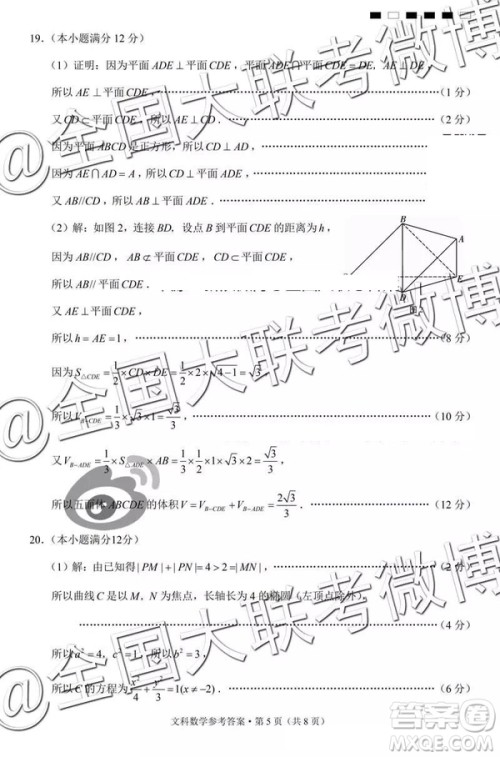 19.（本小题满分 12 分）
（1）证明：因为平面 ADE⊥平面 CDE，平面 ADE∩平面 CDE=DE，AE⊥DE，
所以 AE⊥平面 CDE， （1 分）
又 CD⊂平面 CDE，所以 AE⊥CD，
因为平面 ABCD 是正方形，所以 CD⊥AD，
因为 AE∩AD=A，所以 CD⊥平面 ADE，
又 AB//CD，所以 AB⊥平面 ADE.
（2）解：如图 2，连接 BD，设点 B 到平面 CDE 的距离为 h，
因为 AB//CD，AB⊄平面 CDE，CD⊂平面 CDE，
所以 AB//平面 CDE，
又 AE⊥平面 CDE，
所以 h=AE=1， （8 分）
因为 S△CDE=1/2×CD×DE=1/2×2×√(4−1)=√3，
所以 V_{B−CDE}=1/3×√3×1=√3/3， （10 分）
又 V_{B−ADE}=1/3×S△ADE×AB=1/3×1/2×1×√3×2=√3/3，
所以五面体 ABCDE 的体积 V=V_{B−CDE}+V_{B−ADE}=2√3/3. （12 分）
B
A
E
D
20.（本小题满分12分）
（1）解：由已知得|PM|+|PN|=4>2=|MN|， （2 分）
所以曲线 C 是以 M，N 为焦点，长轴长为 4 的椭圆（左顶点除外）， （4 分）
所以 a²=4，c²=1，所以 b²=3，
所以 C 的方程为 x²/4+y²/3=1(x≠−2). （6 分）
文科数学参考答案·第 5 页（共 8 页）
@全国大联考微博
@全国大联考微博
作业帮